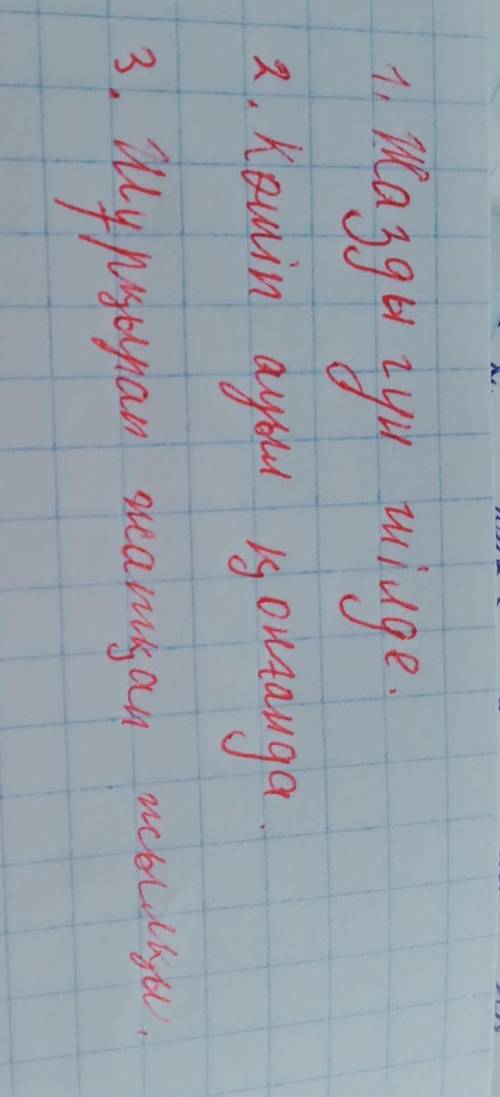 1. Жазды гүн шілде.
2. Көшіп ауыл қонғанда.
3. Шұрқырап жатқан жылқы.